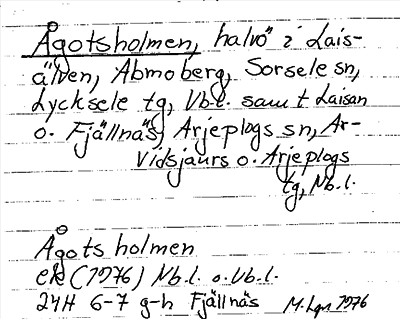 Ågotsholmen, halvö i Lais-
älven, Abmoberg, Sorsele sn,
Lycksele tg, Vb.l. samt Laisan
o. Fjällnäs, Arjeplogs sn, Ar-
vidsjaurs o. Arjeplogs
tg, Nb.l.
Ågotsholmen
ek (1976) Nb.l. o. Vb.l.
24H 6-7 g-h Fjällnäs M.Lgn 1976